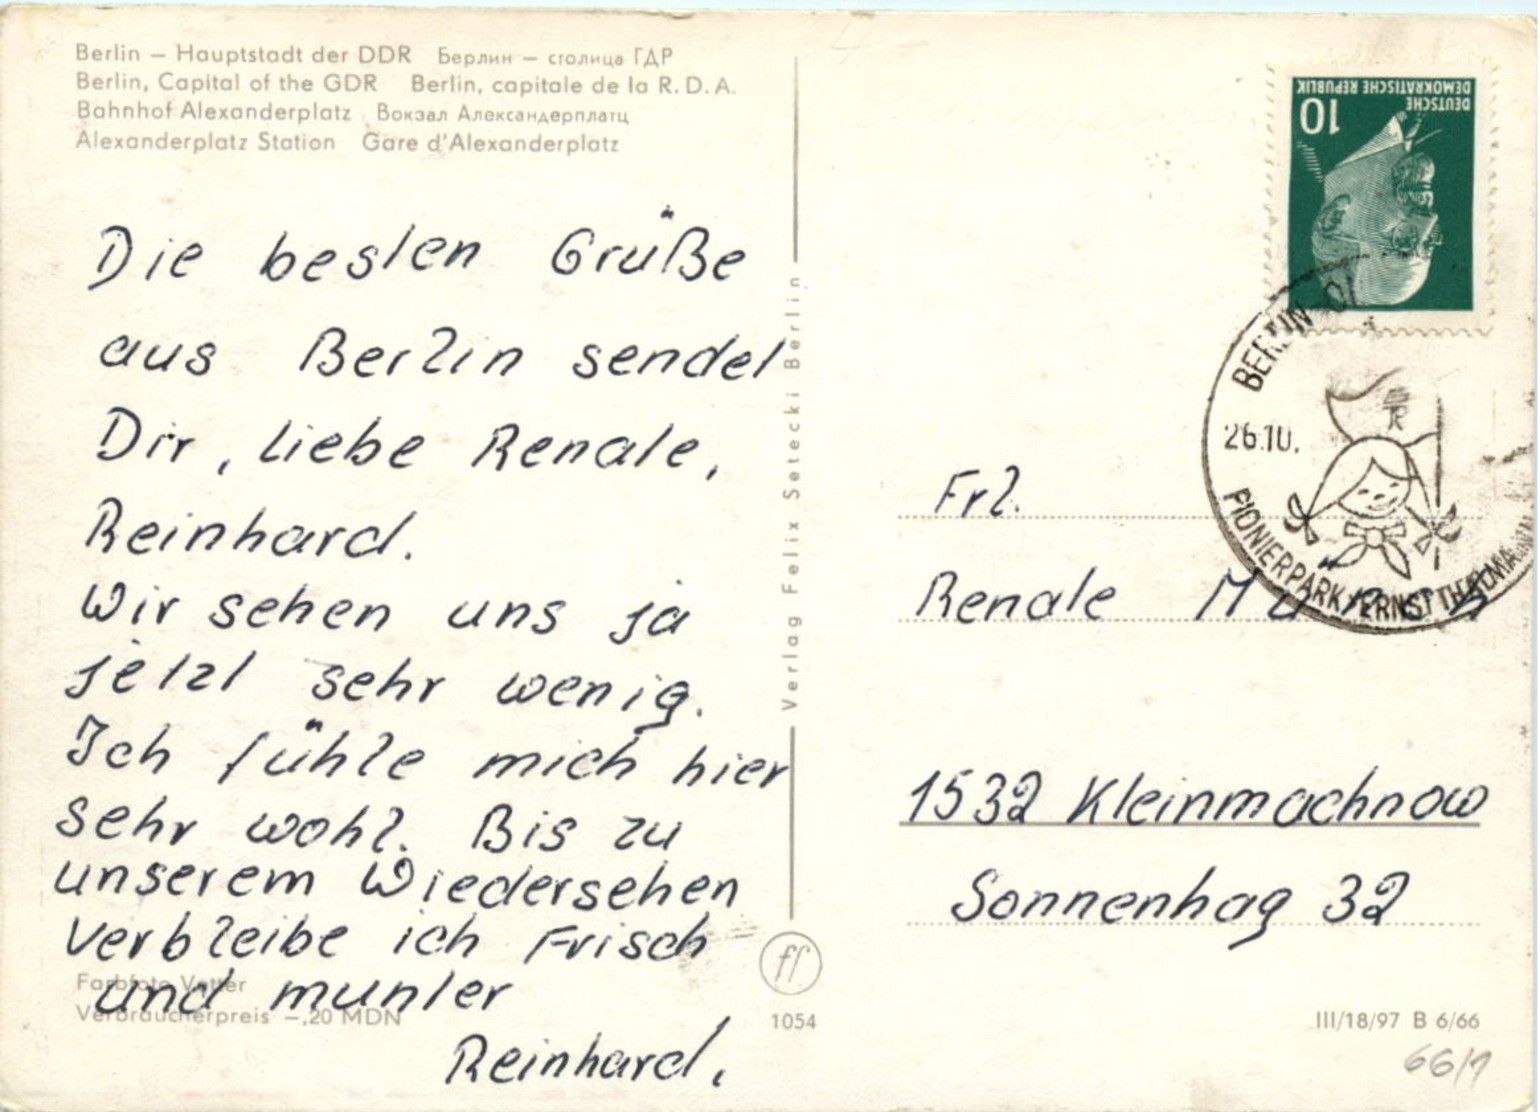 Berlin – Hauptstadt der DDR Берлин – столица ГДР
Berlin, Capital of the GDR Berlin, capitale de la R.D.A.
Bahnhof Alexanderplatz Вокзал Александерплатц
Alexanderplatz Station Gare d'Alexanderplatz
Die besten Grüße
aus Berlin sendet
Dir, liebe Renate,
Reinhard.
Wir sehen uns ja
jetzt sehr wenig.
Ich fühle mich hier
sehr wohl. Bis zu
unserem Wiedersehen
verbleibe ich Frisch
und munter
Reinhard.
Farbfoto Vetter
Verbraucherpreis –,20 MDN
Verlag Felix Setecki Berlin
ff
1054
DEUTSCHE
DEMOKRATISCHE REPUBLIK
10
BERLIN
26.10.
PIONIERPARK ERNST THÄLMANN
Frl.
Renate
1532 Kleinmachnow
Sonnenhag 32
III/18/97 B 6/66
66/1